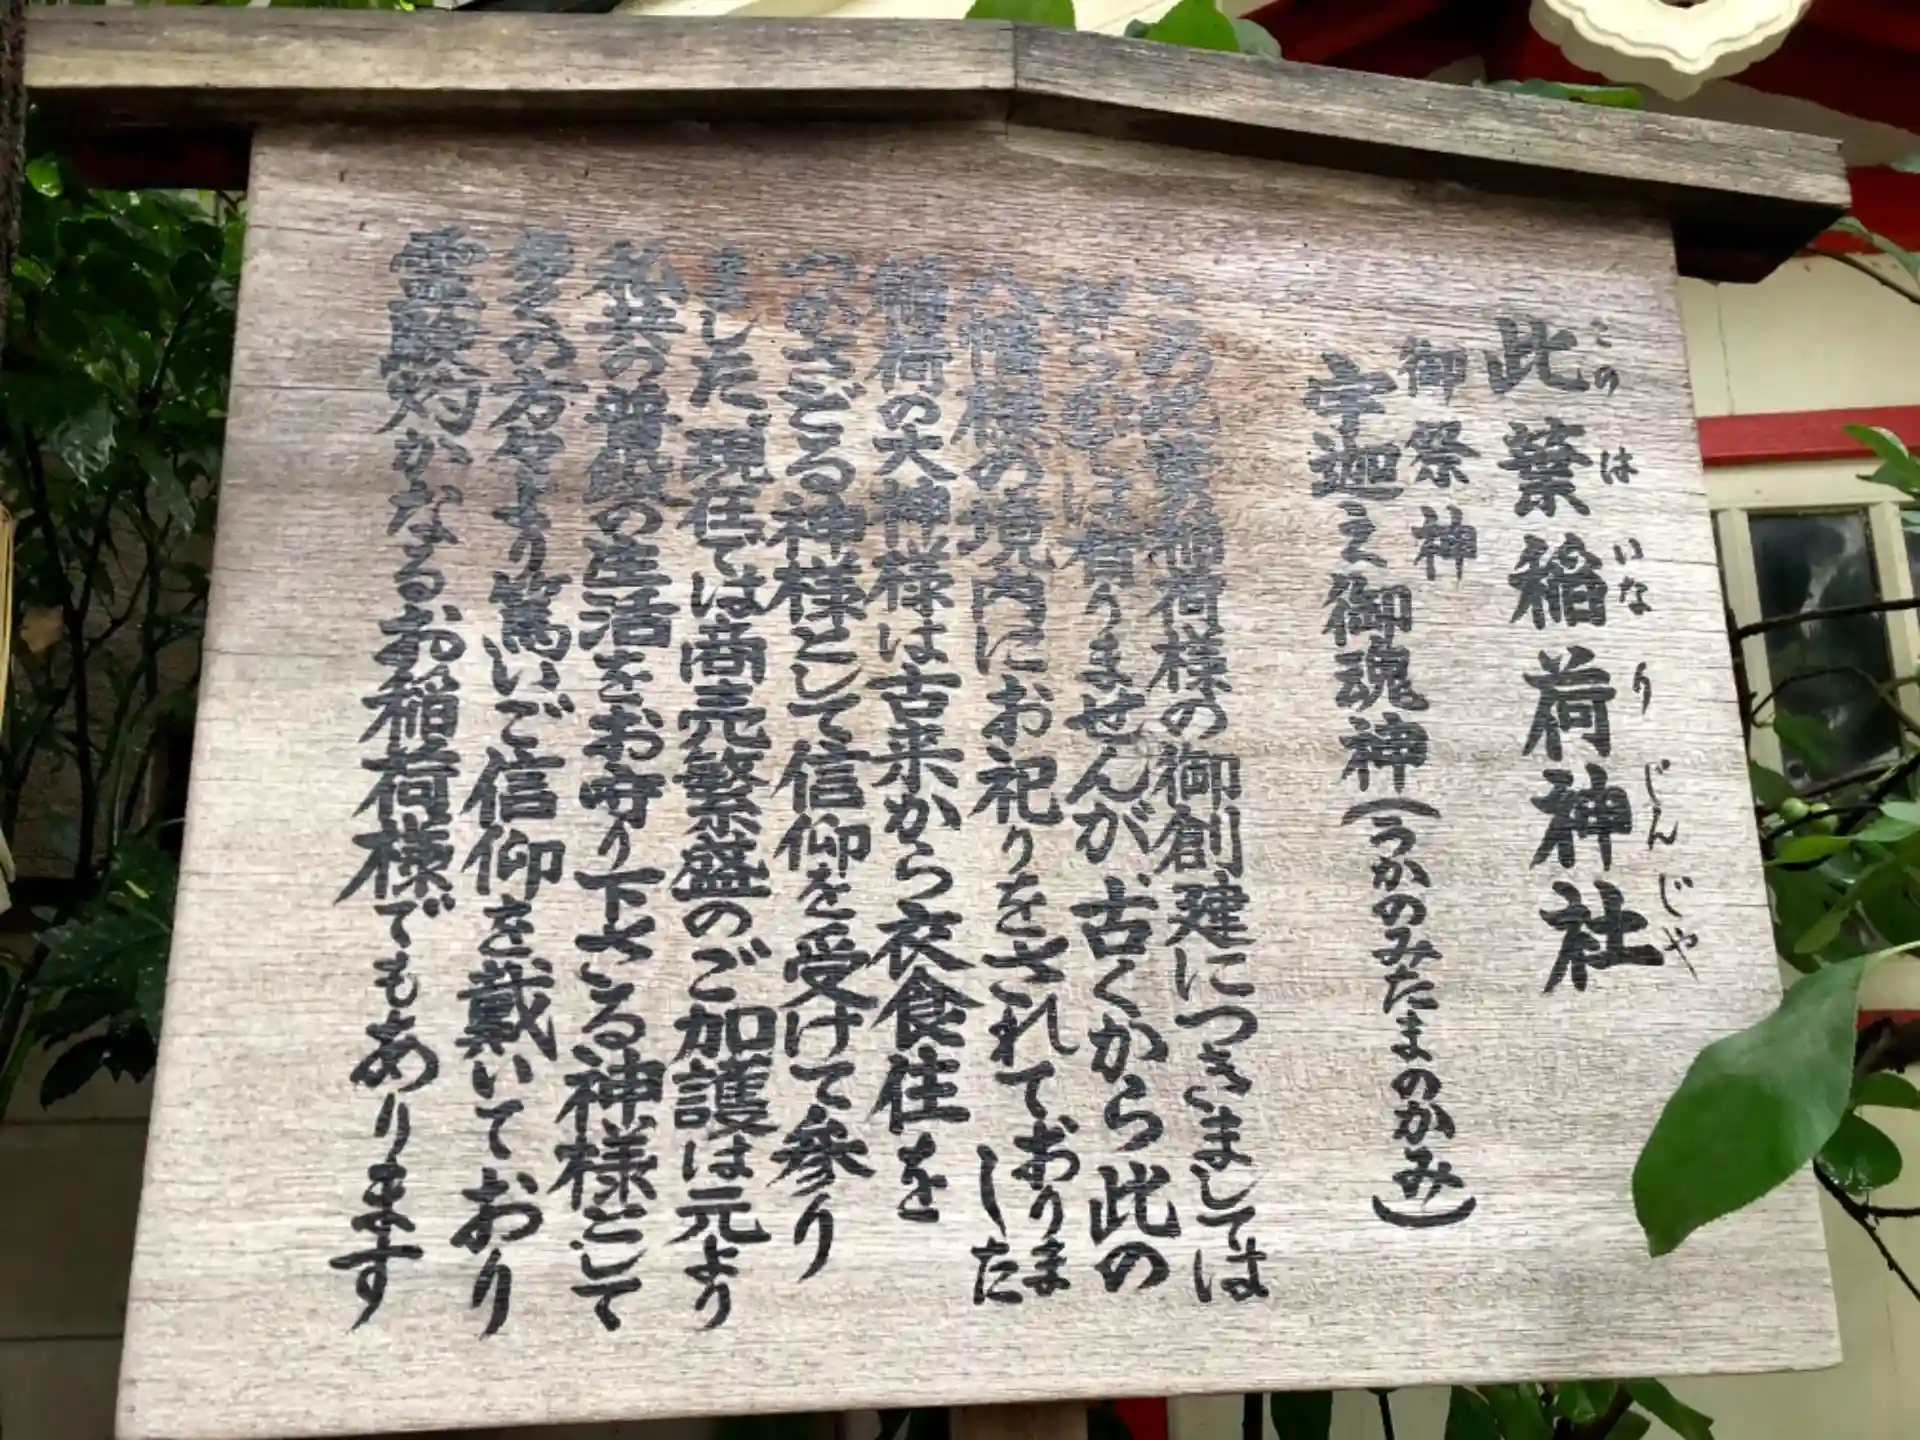 此葉稲荷神社
このはいなりじんじや
御祭神
宇迦之御魂神(うかのみたまのかみ)
この此葉稲荷様の御創建につきましては
詳らかでは有りませんが、古くから此の
八幡様の境内にお祀りをされておりました
稲荷の大神様は古来から衣食住を
つかさどる神様として信仰を受けて参り
ました、現在では商売繁盛のご加護は元より
私共の普段の生活をお守り下さる神様として
多くの方々より篤いご信仰を戴いており
霊験灼かなるお稲荷様でもあります